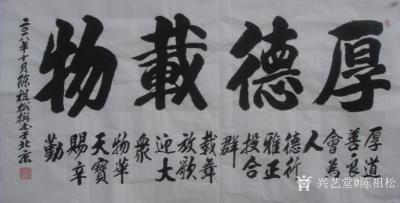 厚德載物
厚道
善良
會為
人
德行
雅正
投合
群
載舞
放歌
迎大
衆
物華
天寶
賜辛
勤
二〇一八年十月陈祖松撰書于北京
兴艺堂@陈祖松